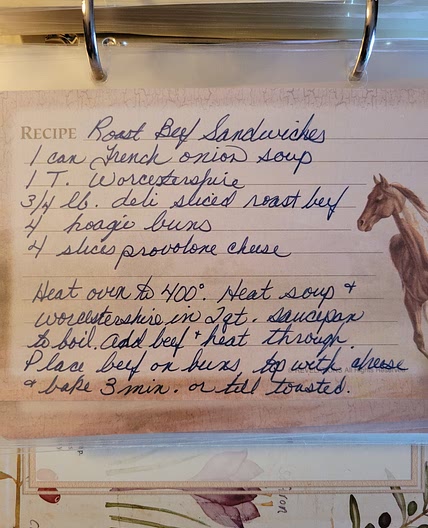 RECIPE Roast Beef Sandwiches
1 can French onion soup
1 T. Worcestershire
3/4 lb. deli sliced roast beef
4 hoagie buns
4 slices provolone cheese
Heat oven to 400°. Heat soup &
worcestershire in 2 qt. saucepan
to boil. add beef & heat through.
Place beef on buns, top with cheese
& bake 3 min. or till toasted.